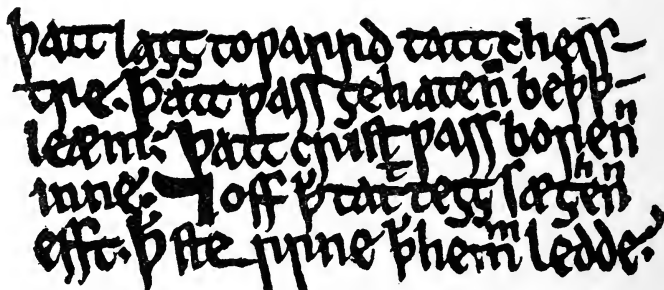 þatt laȝȝ toƿarrd tatt chess-
tre. þatt ƿass ȝehatenn beþþ-
leæm. þatt crist ƿass borenn
inne. ⁊ off ꝥ tatt teȝȝ sæȝhenn
efft. ꝥ ste rrne ꝥ hemm ledde.